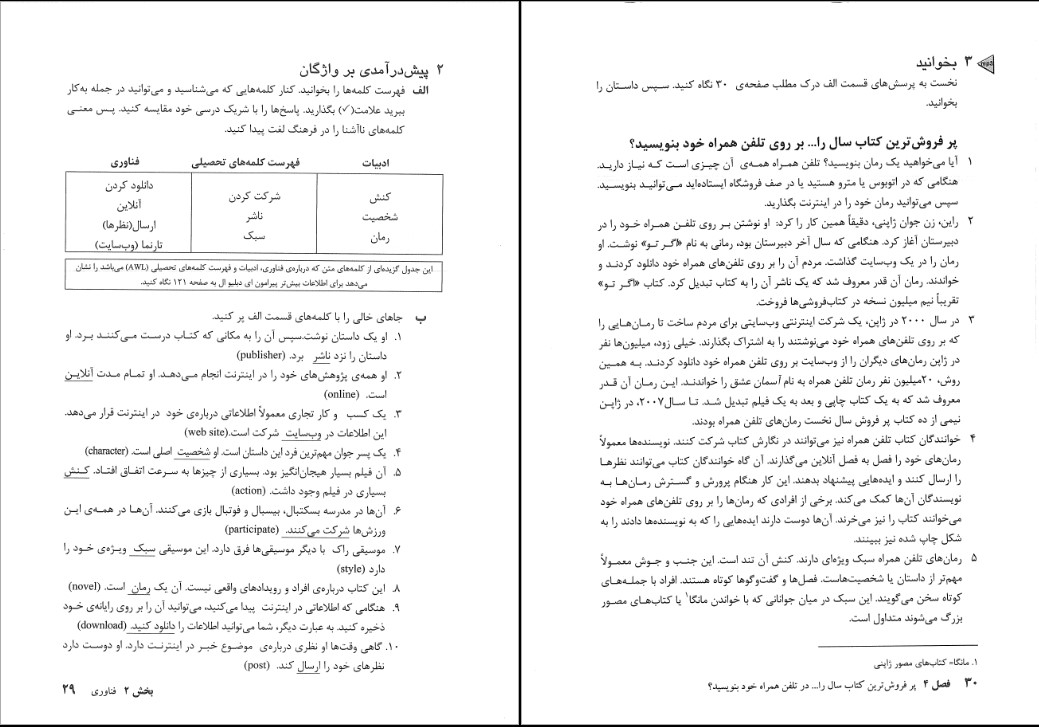 ۲ پیش‌درآمدی بر واژگان
الف فهرست کلمه‌ها را بخوانید. کنار کلمه‌هایی که می‌شناسید و می‌توانید در جمله به‌کار
ببرید علامت(✓) بگذارید. پاسخ‌ها را با شریک درسی خود مقایسه کنید. پس معنی
کلمه‌های ناآشنا را در فرهنگ لغت پیدا کنید.
ادبیات فهرست کلمه‌های تحصیلی فناوری
کنش شرکت کردن دانلود کردن
شخصیت ناشر آنلاین
رمان سبک ارسال(نظرها)
تارنما (وب‌سایت)
این جدول گزیده‌ای از کلمه‌های متن که درباره‌ی فناوری، ادبیات و فهرست کلمه‌های تحصیلی (AWL) می‌باشد را نشان
می‌دهد برای اطلاعات بیش‌تر پیرامون ای دبلیو ال به صفحه ۱۲۱ نگاه کنید.
ب جاهای خالی را با کلمه‌های قسمت الف پر کنید.
۱. او یک داستان نوشت.سپس آن را به مکانی که کتاب درست می‌کنند برد. او
داستان را نزد ناشر برد. (publisher)
۲. او همه‌ی پژوهش‌های خود را در اینترنت انجام می‌دهد. او تمام مدت آنلاین
است. (online)
۳. یک کسب و کار تجاری معمولاً اطلاعاتی درباره‌ی خود در اینترنت قرار می‌دهد.
این اطلاعات در وب‌سایت شرکت است.(web site)
۴. یک پسر جوان مهم‌ترین فرد این داستان است. او شخصیت اصلی است. (character)
۵. آن فیلم بسیار هیجان‌انگیز بود. بسیاری از چیزها به سرعت اتفاق افتاد. کنش
بسیاری در فیلم وجود داشت. (action)
۶. آن‌ها در مدرسه بسکتبال، بیسبال و فوتبال بازی می‌کنند. آن‌ها در همه‌ی این
ورزش‌ها شرکت می‌کنند. (participate)
۷. موسیقی راک با دیگر موسیقی‌ها فرق دارد. این موسیقی سبک ویژه‌ی خود را
دارد (style)
۸. این کتاب درباره‌ی افراد و رویدادهای واقعی نیست. آن یک رمان است. (novel)
۹. هنگامی که اطلاعاتی در اینترنت پیدا می‌کنید، می‌توانید آن را بر روی رایانه‌ی خود
ذخیره کنید. به عبارت دیگر، شما می‌توانید اطلاعات را دانلود کنید. (download)
۱۰. گاهی وقت‌ها او نظری درباره‌ی موضوع خبر در اینترنت دارد. او دوست دارد
نظرهای خود را ارسال کند. (post)
بخش ۲ فناوری ۲۹
۳ بخوانید
نخست به پرسش‌های قسمت الف درک مطلب صفحه‌ی ۳۰ نگاه کنید. سپس داستان را
بخوانید.
پر فروش‌ترین کتاب سال را... بر روی تلفن همراه خود بنویسید؟
۱ آیا می‌خواهید یک رمان بنویسید؟ تلفن همراه همه‌ی آن چیزی است که نیاز دارید.
هنگامی که در اتوبوس یا مترو هستید یا در صف فروشگاه ایستاده‌اید می‌توانید بنویسید.
سپس می‌توانید رمان خود را در اینترنت بگذارید.
۲ راین، زن جوان ژاپنی، دقیقاً همین کار را کرد: او نوشتن بر روی تلفن همراه خود را در
دبیرستان آغاز کرد. هنگامی که سال آخر دبیرستان بود، رمانی به نام «اگر تو» نوشت. او
رمان را در یک وب‌سایت گذاشت. مردم آن را بر روی تلفن‌های همراه خود دانلود کردند و
خواندند. رمان آن قدر معروف شد که یک ناشر آن را به کتاب تبدیل کرد. کتاب «اگر تو»
تقریباً نیم میلیون نسخه در کتاب‌فروشی‌ها فروخت.
۳ در سال ۲۰۰۰ در ژاپن، یک شرکت اینترنتی وب‌سایتی برای مردم ساخت تا رمان‌هایی را
که بر روی تلفن‌های همراه خود می‌نوشتند را به اشتراک بگذارند. خیلی زود، میلیون‌ها نفر
در ژاپن رمان‌های دیگران را از وب‌سایت بر روی تلفن همراه خود دانلود کردند. به همین
روش، ۲۰میلیون نفر رمان تلفن همراه به نام آسمان عشق را خواندند. این رمان آن قدر
معروف شد که به یک کتاب چاپی و بعد به یک فیلم تبدیل شد. تا سال۲۰۰۷، در ژاپن
نیمی از ده کتاب پر فروش سال نخست رمان‌های تلفن همراه بودند.
۴ خوانندگان کتاب تلفن همراه نیز می‌توانند در نگارش کتاب شرکت کنند. نویسنده‌ها معمولاً
رمان‌های خود را فصل به فصل آنلاین می‌گذارند. آن گاه خوانندگان کتاب می‌توانند نظرها
را ارسال کنند و ایده‌هایی پیشنهاد بدهند. این کار هنگام پرورش و گسترش رمان‌ها به
نویسندگان آن‌ها کمک می‌کند. برخی از افرادی که رمان‌ها را بر روی تلفن‌های همراه خود
می‌خوانند کتاب را نیز می‌خرند. آن‌ها دوست دارند ایده‌هایی را که به نویسنده‌ها دادند را به
شکل چاپ شده نیز ببینند.
۵ رمان‌های تلفن همراه سبک ویژه‌ای دارند. کنش آن تند است. این جنب و جوش معمولاً
مهم‌تر از داستان یا شخصیت‌هاست. فصل‌ها و گفت‌وگوها کوتاه هستند. افراد با جمله‌های
کوتاه سخن می‌گویند. این سبک در میان جوانانی که با خواندن مانگا۱ یا کتاب‌های مصور
بزرگ می‌شوند متداول است.
۱. مانگا= کتاب‌های مصور ژاپنی
۳۰ فصل ۴ پر فروش‌ترین کتاب سال را... در تلفن همراه خود بنویسید؟